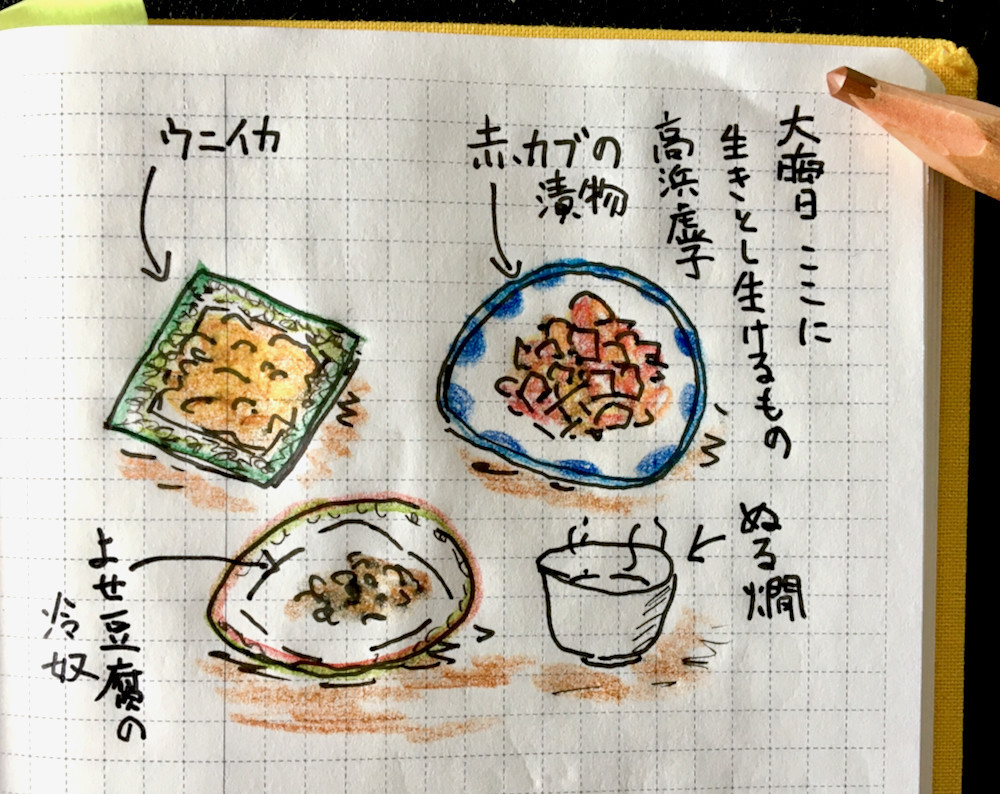 大晦日 ここに
生きとし生けるもの
高浜虚子
赤カブの
漬物
ウニイカ
ぬる燗
よせ豆腐の
冷奴